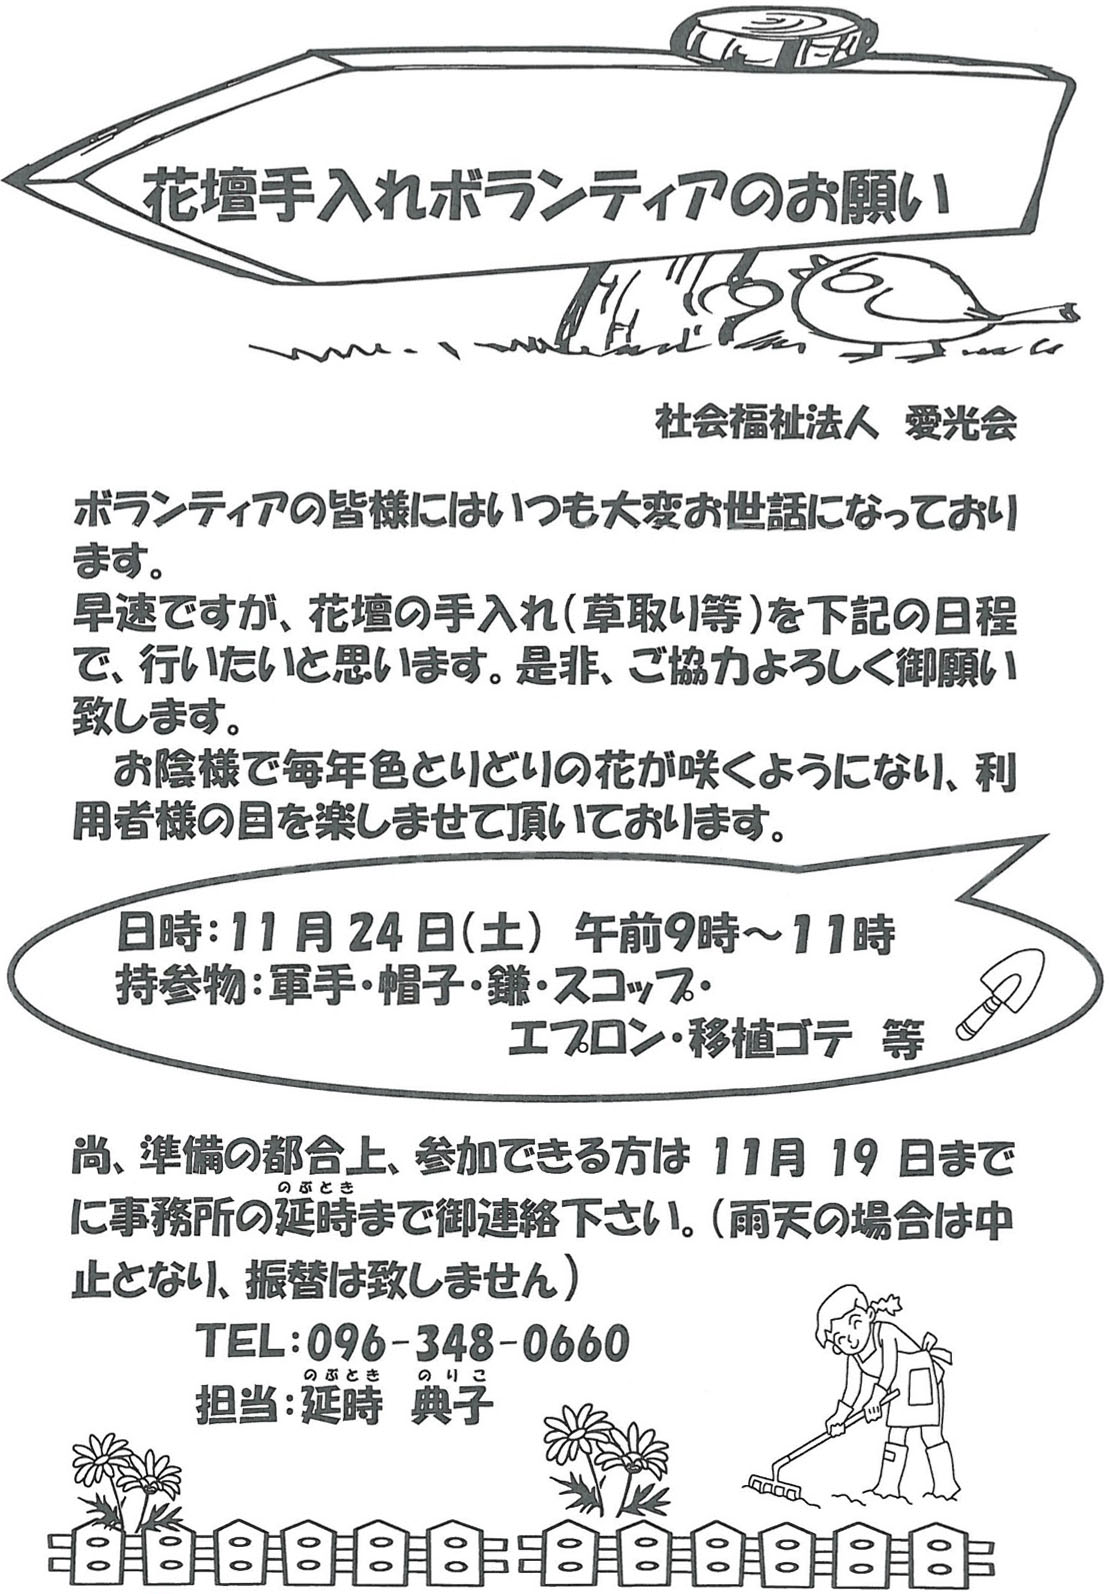 花壇手入れボランティアのお願い
社会福祉法人 愛光会
ボランティアの皆様にはいつも大変お世話になっており
ます。
早速ですが、花壇の手入れ(草取り等)を下記の日程
で、行いたいと思います。是非、ご協力よろしく御願い
致します。
　お陰様で毎年色とりどりの花が咲くようになり、利
用者様の目を楽しませて頂いております。
日時：11月24日(土) 午前9時～11時
持参物：軍手・帽子・鎌・スコップ・
エプロン・移植ゴテ 等
尚、準備の都合上、参加できる方は 11月 19 日まで
のぶとき
に事務所の延時まで御連絡下さい。(雨天の場合は中
止となり、振替は致しません)
TEL：096-348-0660
のぶとき のりこ
担当：延時 典子